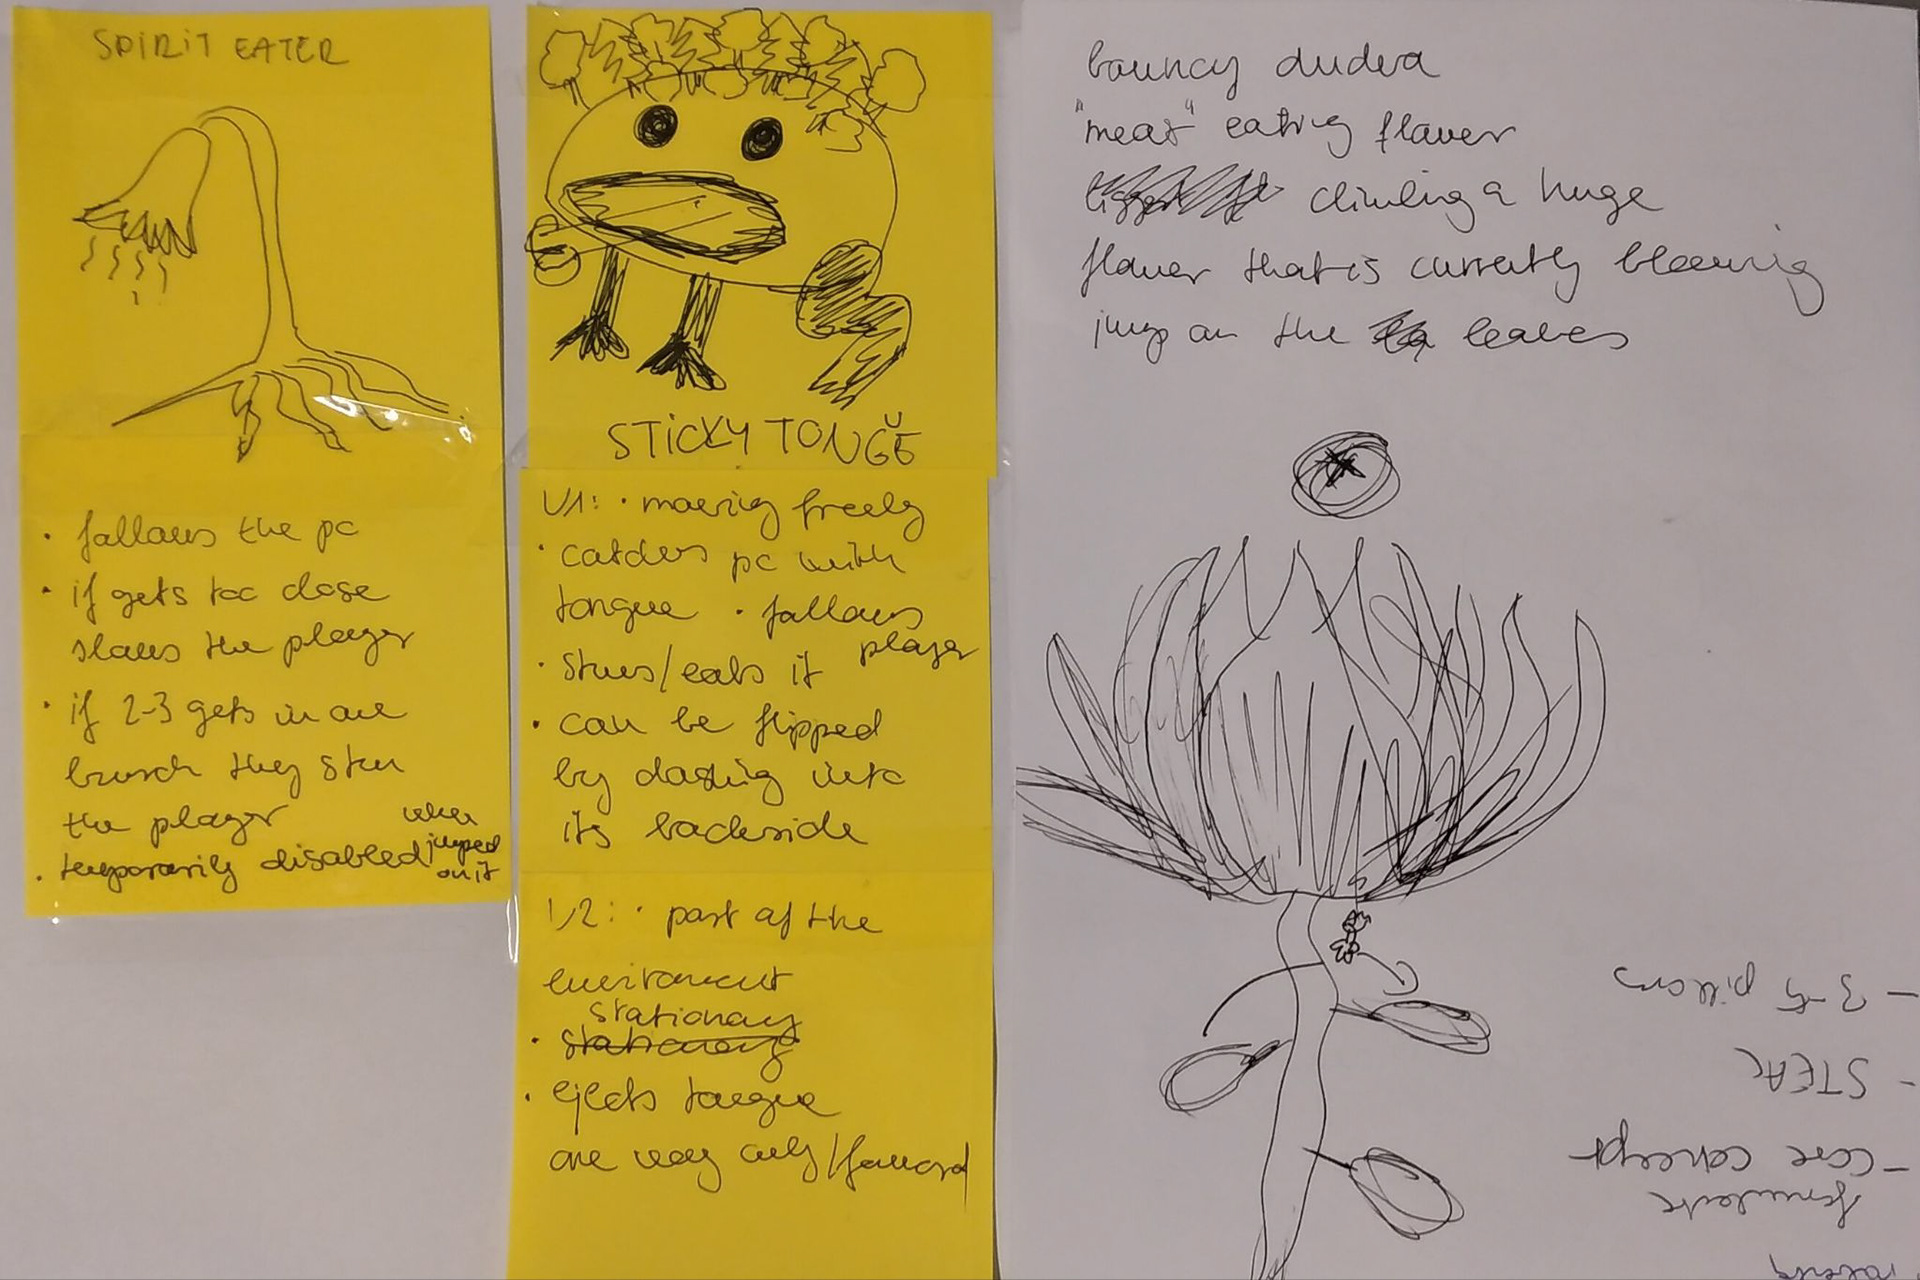 SPIRIT EATER
• follows the pc
• if gets too close
slows the player
• if 2-3 gets in one
bunch they stun
the player
• temporarily disabled when
jumped
on it
STICKY TONGŬE
V1: • moving freely
• catches pc with
tongue • follows
player
• stuns/eats it
• can be flipped
by dashing into
its backside
V2: • part of the
environment
stationary
• stationary
• ejects tongue
one way only/forward
bouncy
"meat" eating flower
climbing a huge
flower that is currently blooming
jump on the leaves
formulate
- core concept
- STEAL
- 3-5 pillars